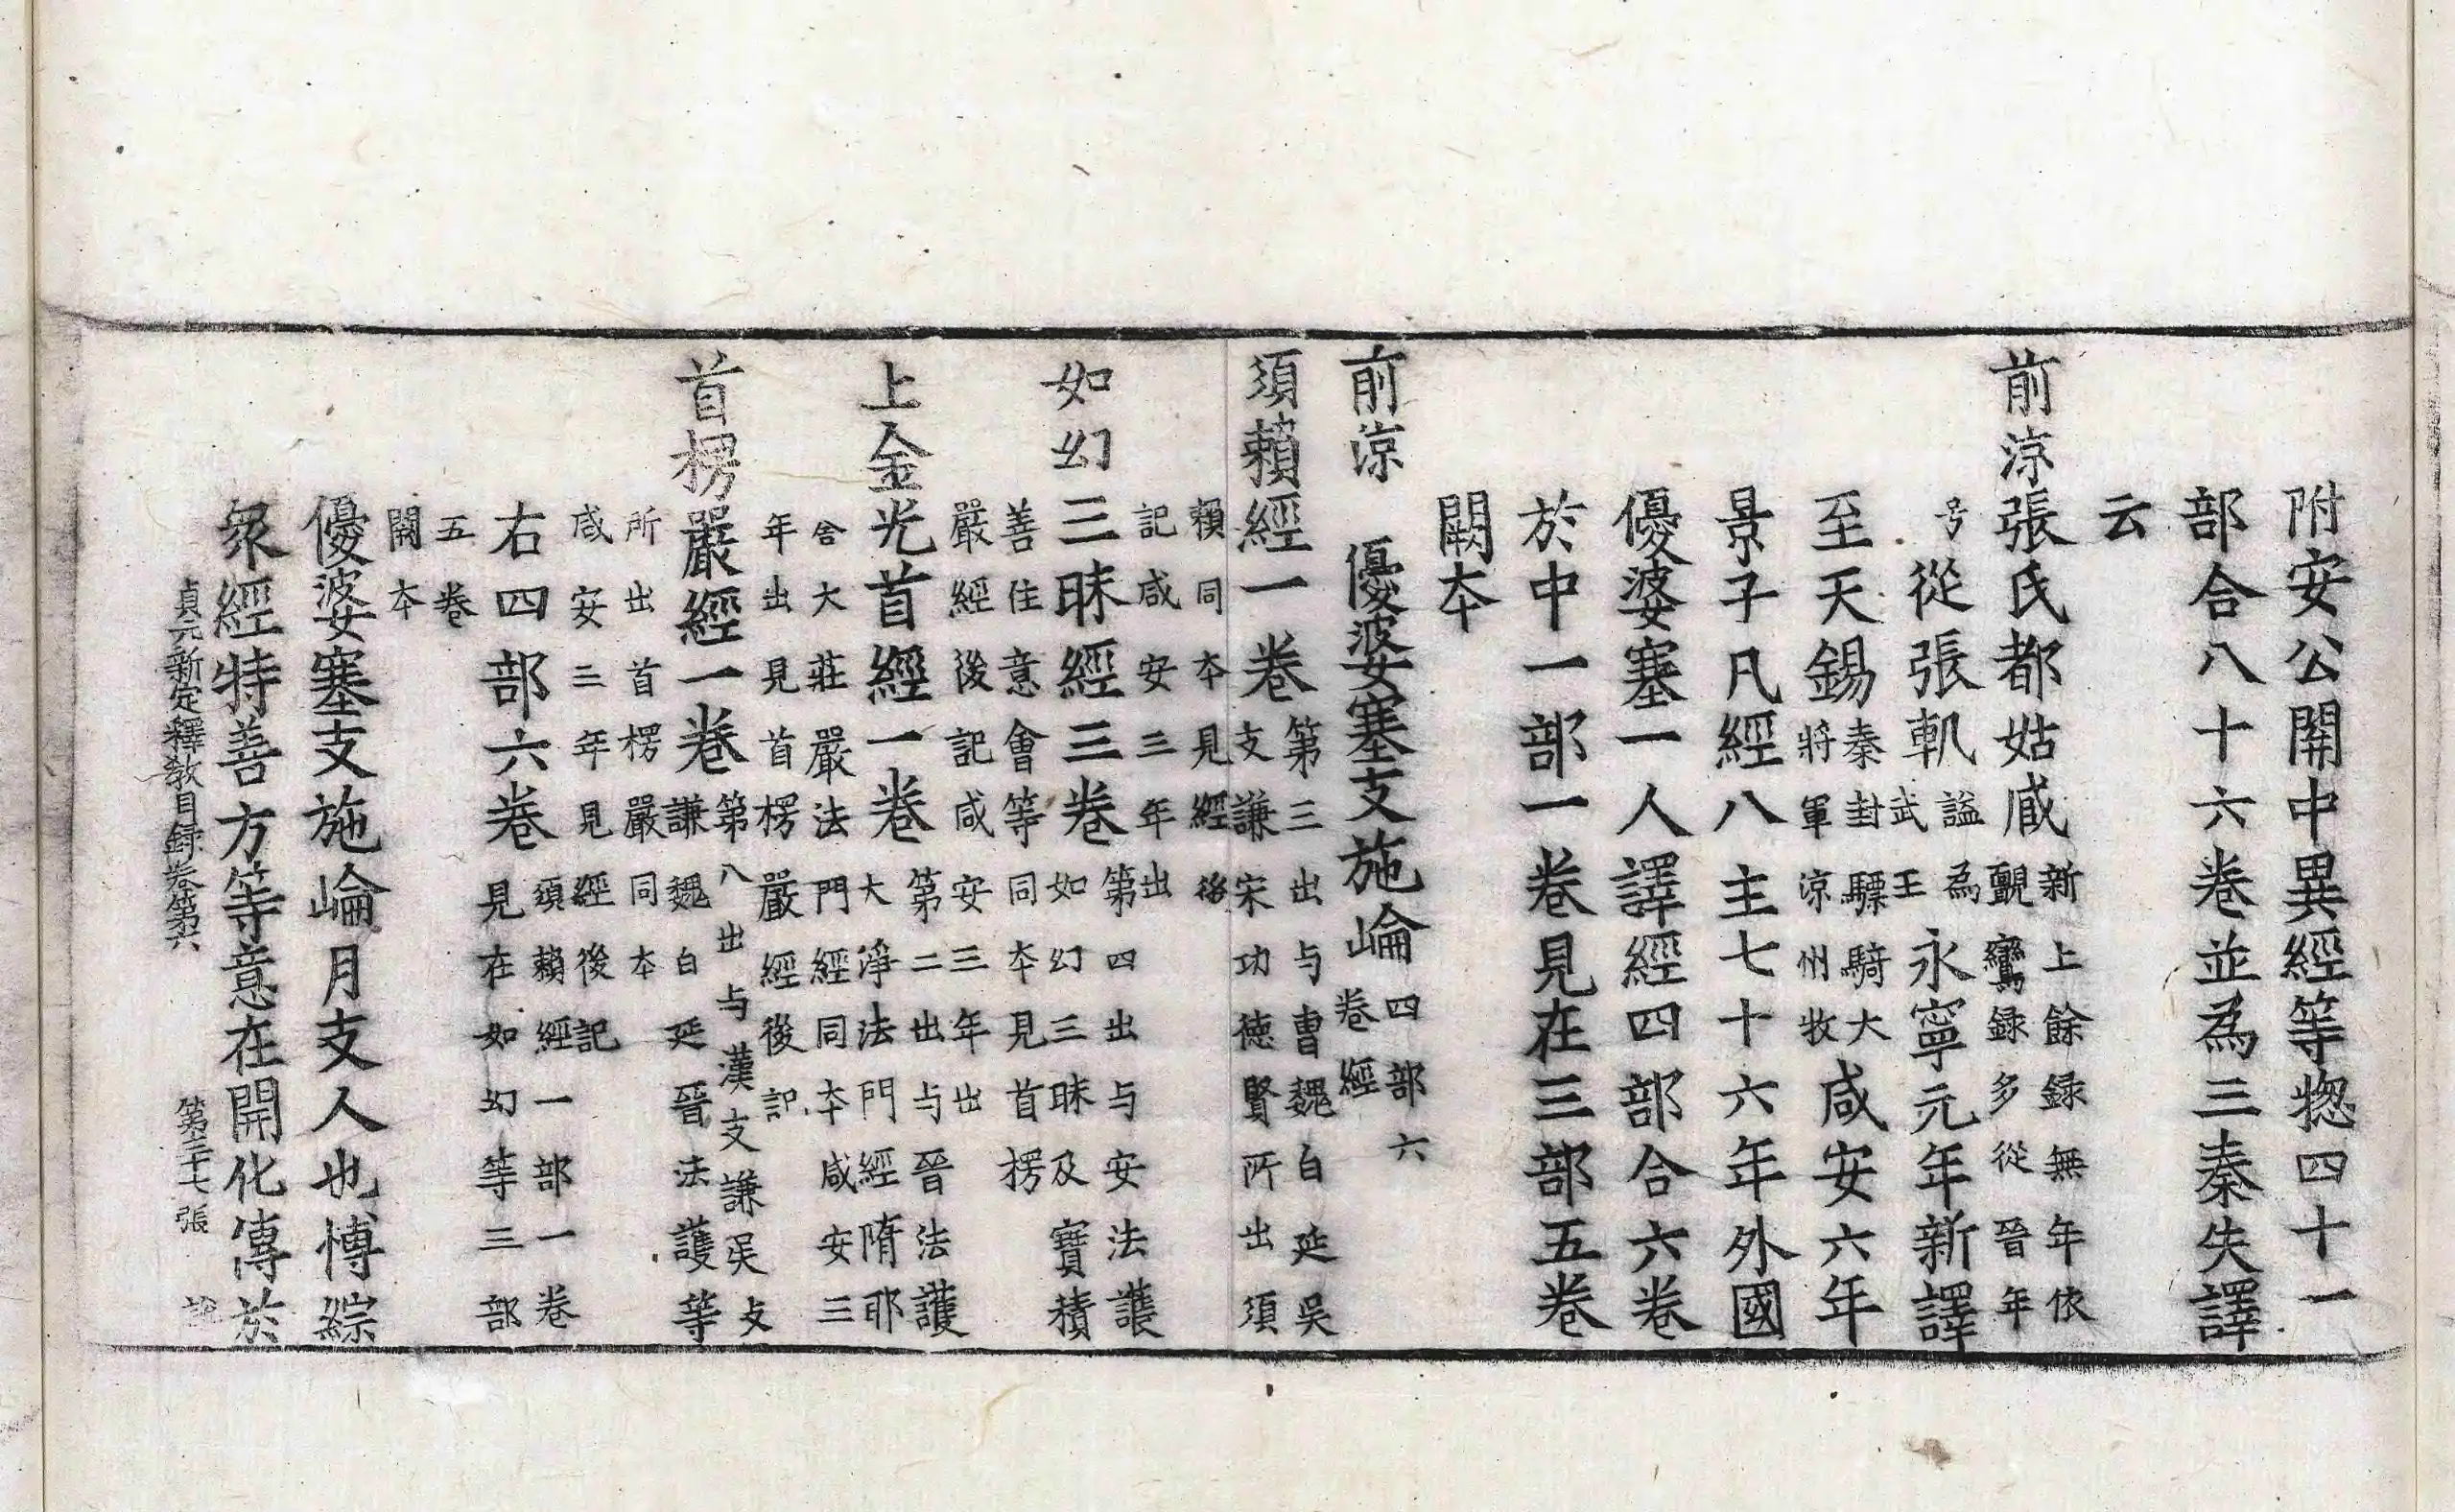 附安公關中異經等惣四十一
部合八十六卷並為三秦失譯
云
前涼張氏都姑臧新上餘録無年依覼鸞録多從晉年
号從張軌謚為武王永寧元年新譯
至天錫秦封驃騎大將軍涼州牧咸安六年
景子凡經八主七十六年外國
優婆塞一人譯經四部合六卷
於中一部一卷見在三部五卷
闕本
前涼 優婆塞支施崘四部六卷經
須賴經一卷第三出与曹魏白延吳支謙宋功德賢所出須
賴同本見經後記咸安三年出
如幻三昧經三卷第四出与安法護如幻三昧及寶積
善住意會等同本見首楞嚴經後記咸安三年出
上金光首經一卷第二出与晉法護大淨法門經隋耶
舍大莊嚴法門經同本咸安三年出見首楞嚴經後記
首楞嚴經一卷第八出与漢支謙吳支謙魏白延晉法護等
所出首楞嚴同本咸安三年見經後記
右四部六卷須賴經一部一卷見在如幻等三部
五卷闕本
優婆塞支施崘月支人也博綜
衆經特善方等意在開化傳於
貞元新定釋教目録卷第六 第三十七張